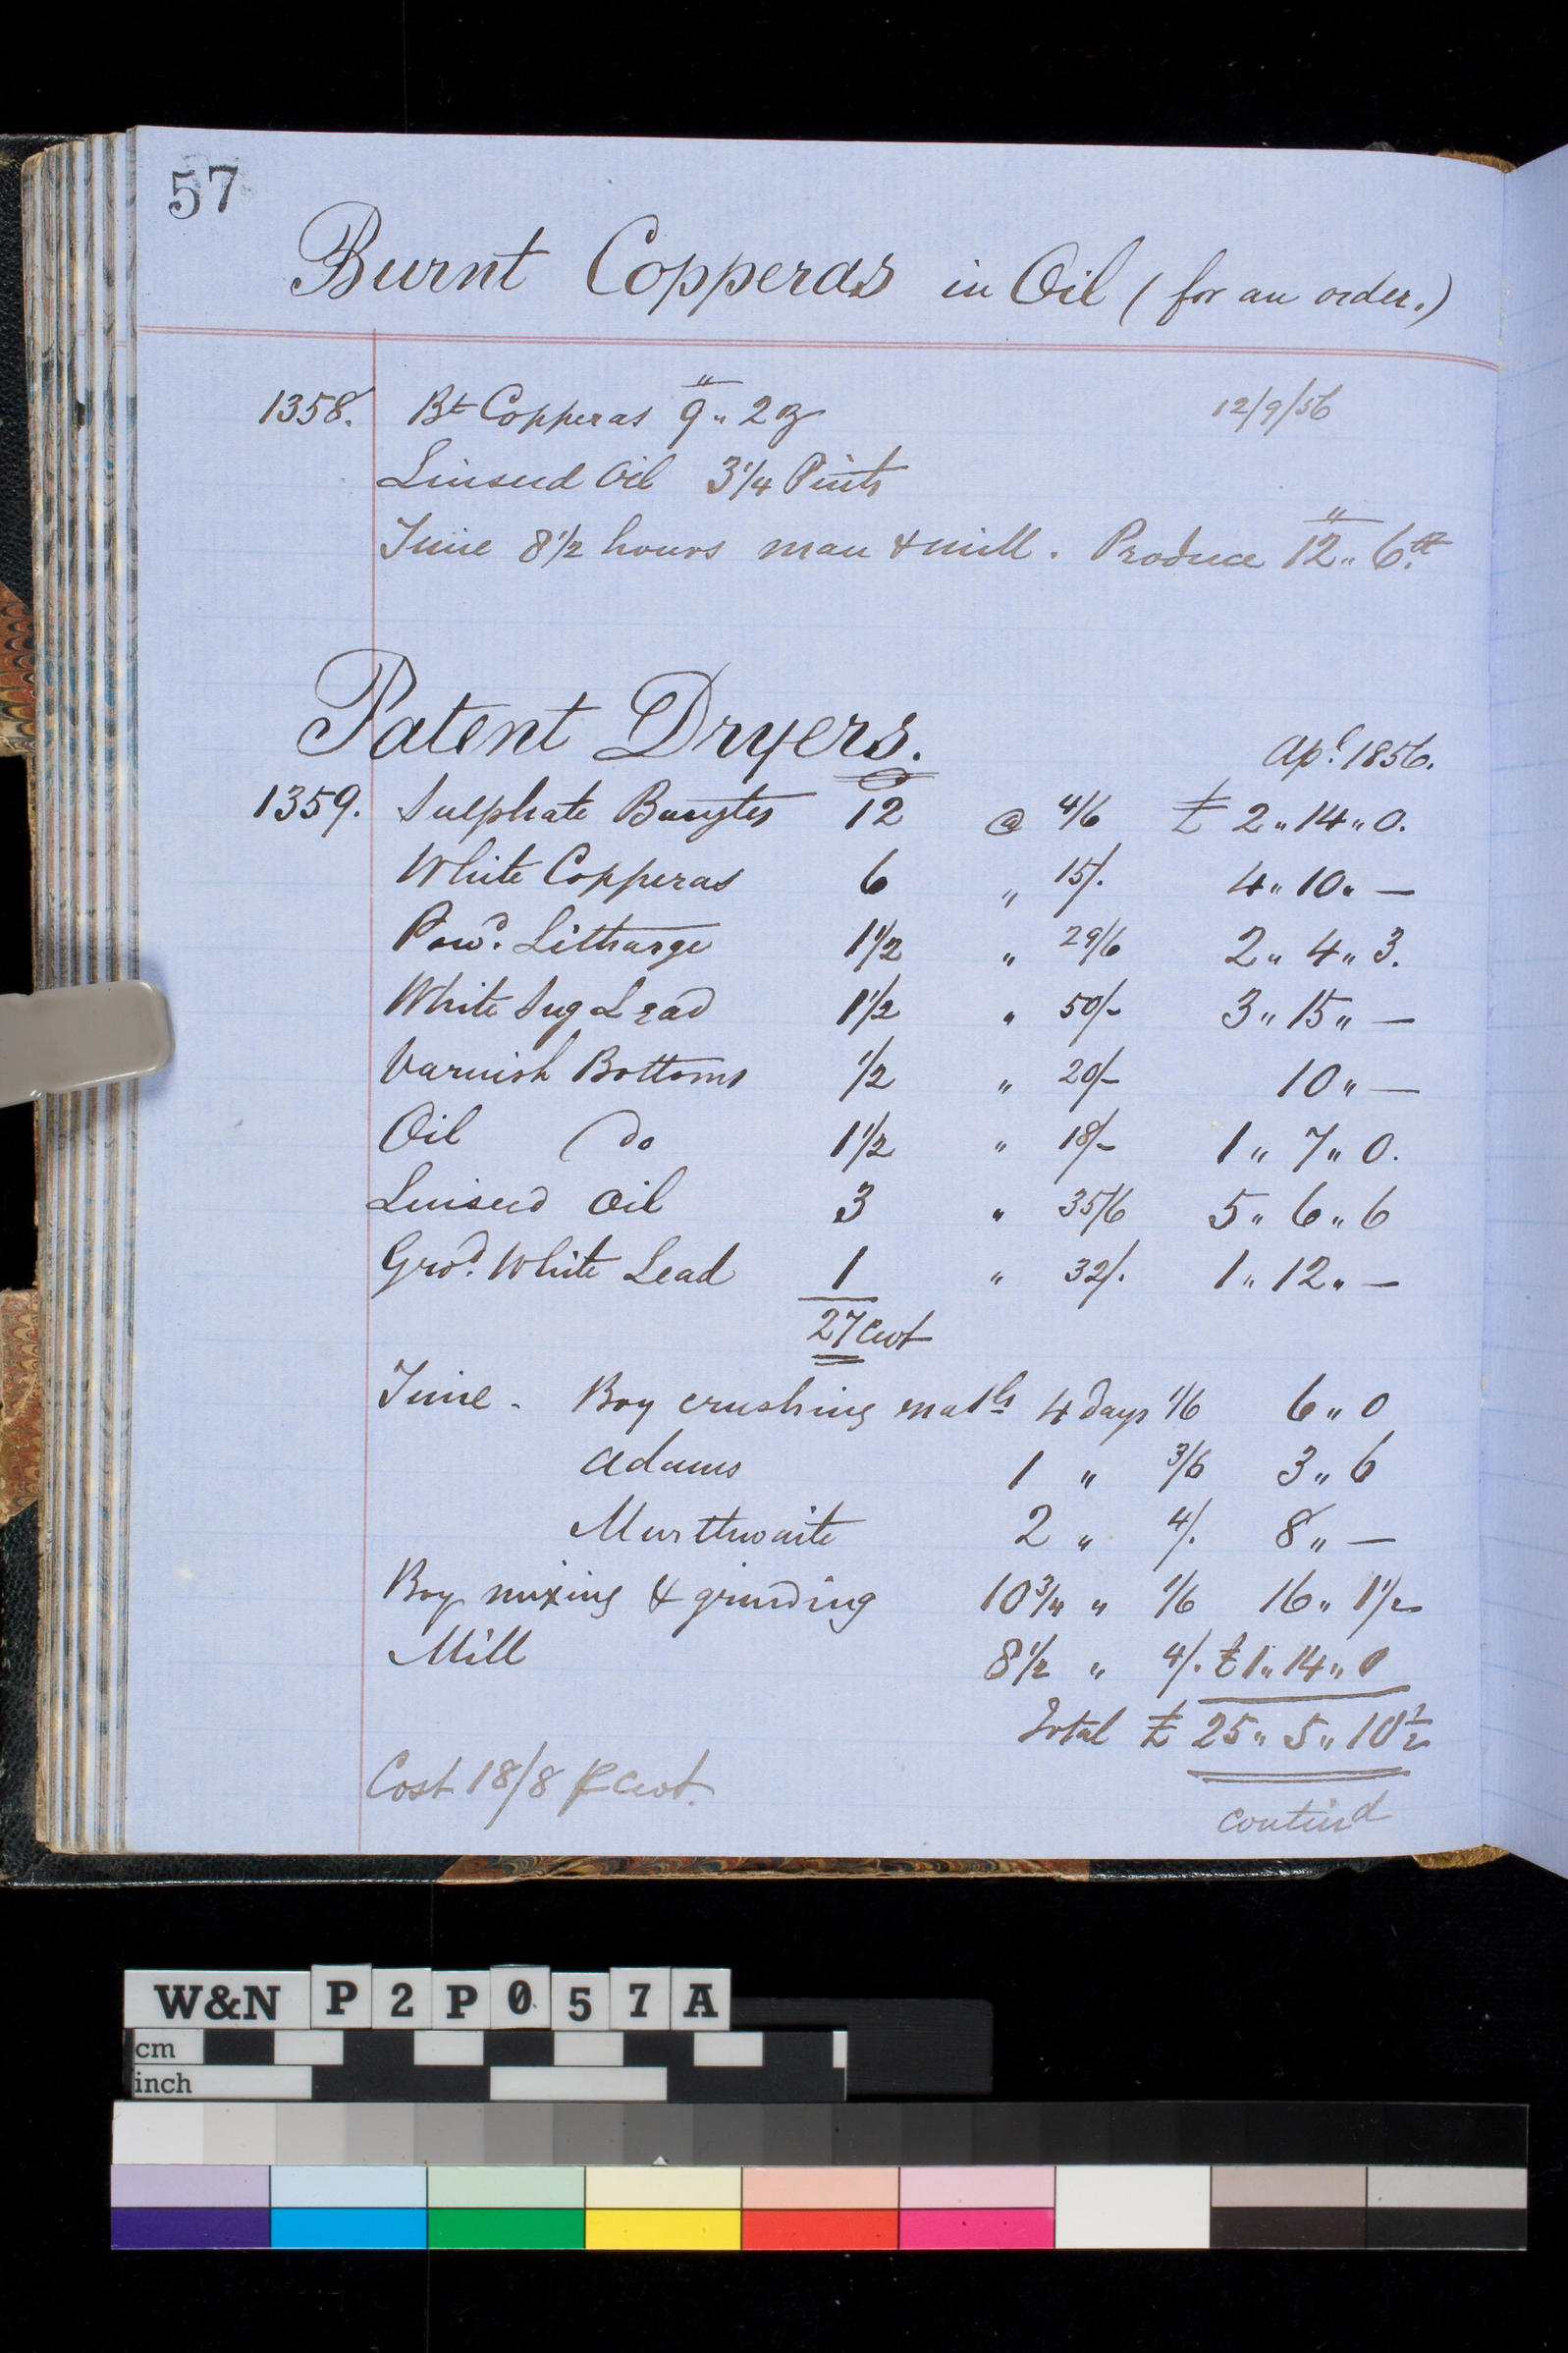 57
Burnt Copperas in Oil (for an order.)
1358. Bt Copperas 9 " 2 oz 12/9/56
Linseed Oil 3 1/4 Pints
Time 8 1/2 hours man & mill. Produce 12 " 6
Patent Dryers. Apl. 1856.
1359. Sulphate Barytes 12 @ 4/6 £ 2 " 14 " 0.
White Copperas 6 " 15/. 4 " 10 " —
Powd. Litharge 1 1/2 " 29/6 2 " 4 " 3.
White Sug Lead 1 1/2 " 50/- 3 " 15 " —
Varnish Bottoms 1/2 " 20/- 10 " —
Oil Do 1 1/2 " 18/- 1 " 7 " 0.
Linseed Oil 3 " 35/6 5 " 6 " 6
Grod. White Lead 1 " 32/. 1 " 12 " —
27 Cwt
Time - Boy crushing matls 4 days 1/6 6 " 0
Adams 1 " 3/6 3 " 6
Murthwaite 2 " 4/. 8 " —
Boy mixing & grinding 10 3/4 " 1/6 16 " 1 1/2
Mill 8 1/2 " 4/. £ 1 " 14 " 0
Total £ 25 " 5 " 10 1/2
Cost 18/8 P Cwt.
contind
W&N P2P057A
cm
inch